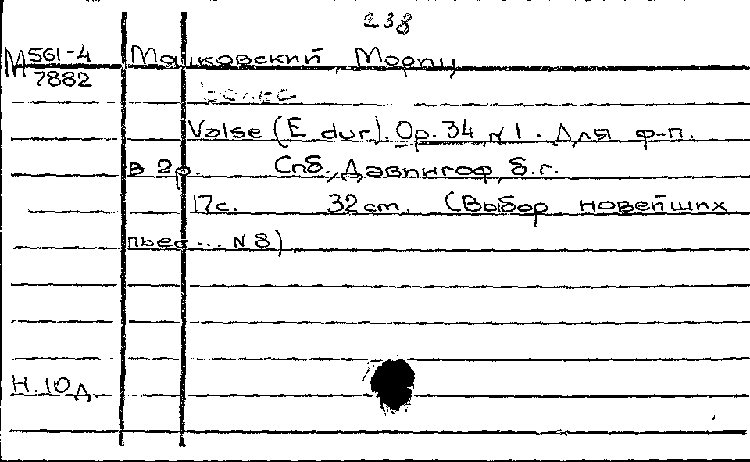 238
М 561-4 Мошковский, Мориц
7882
Вальс
Valse (E dur). Op. 34, N 1. Для ф-п.
в 2 р. Спб., Давингоф, б.г.
17 с. 32 cm. (Выбор новейших
пьес... N 8)
Н. 10 д.